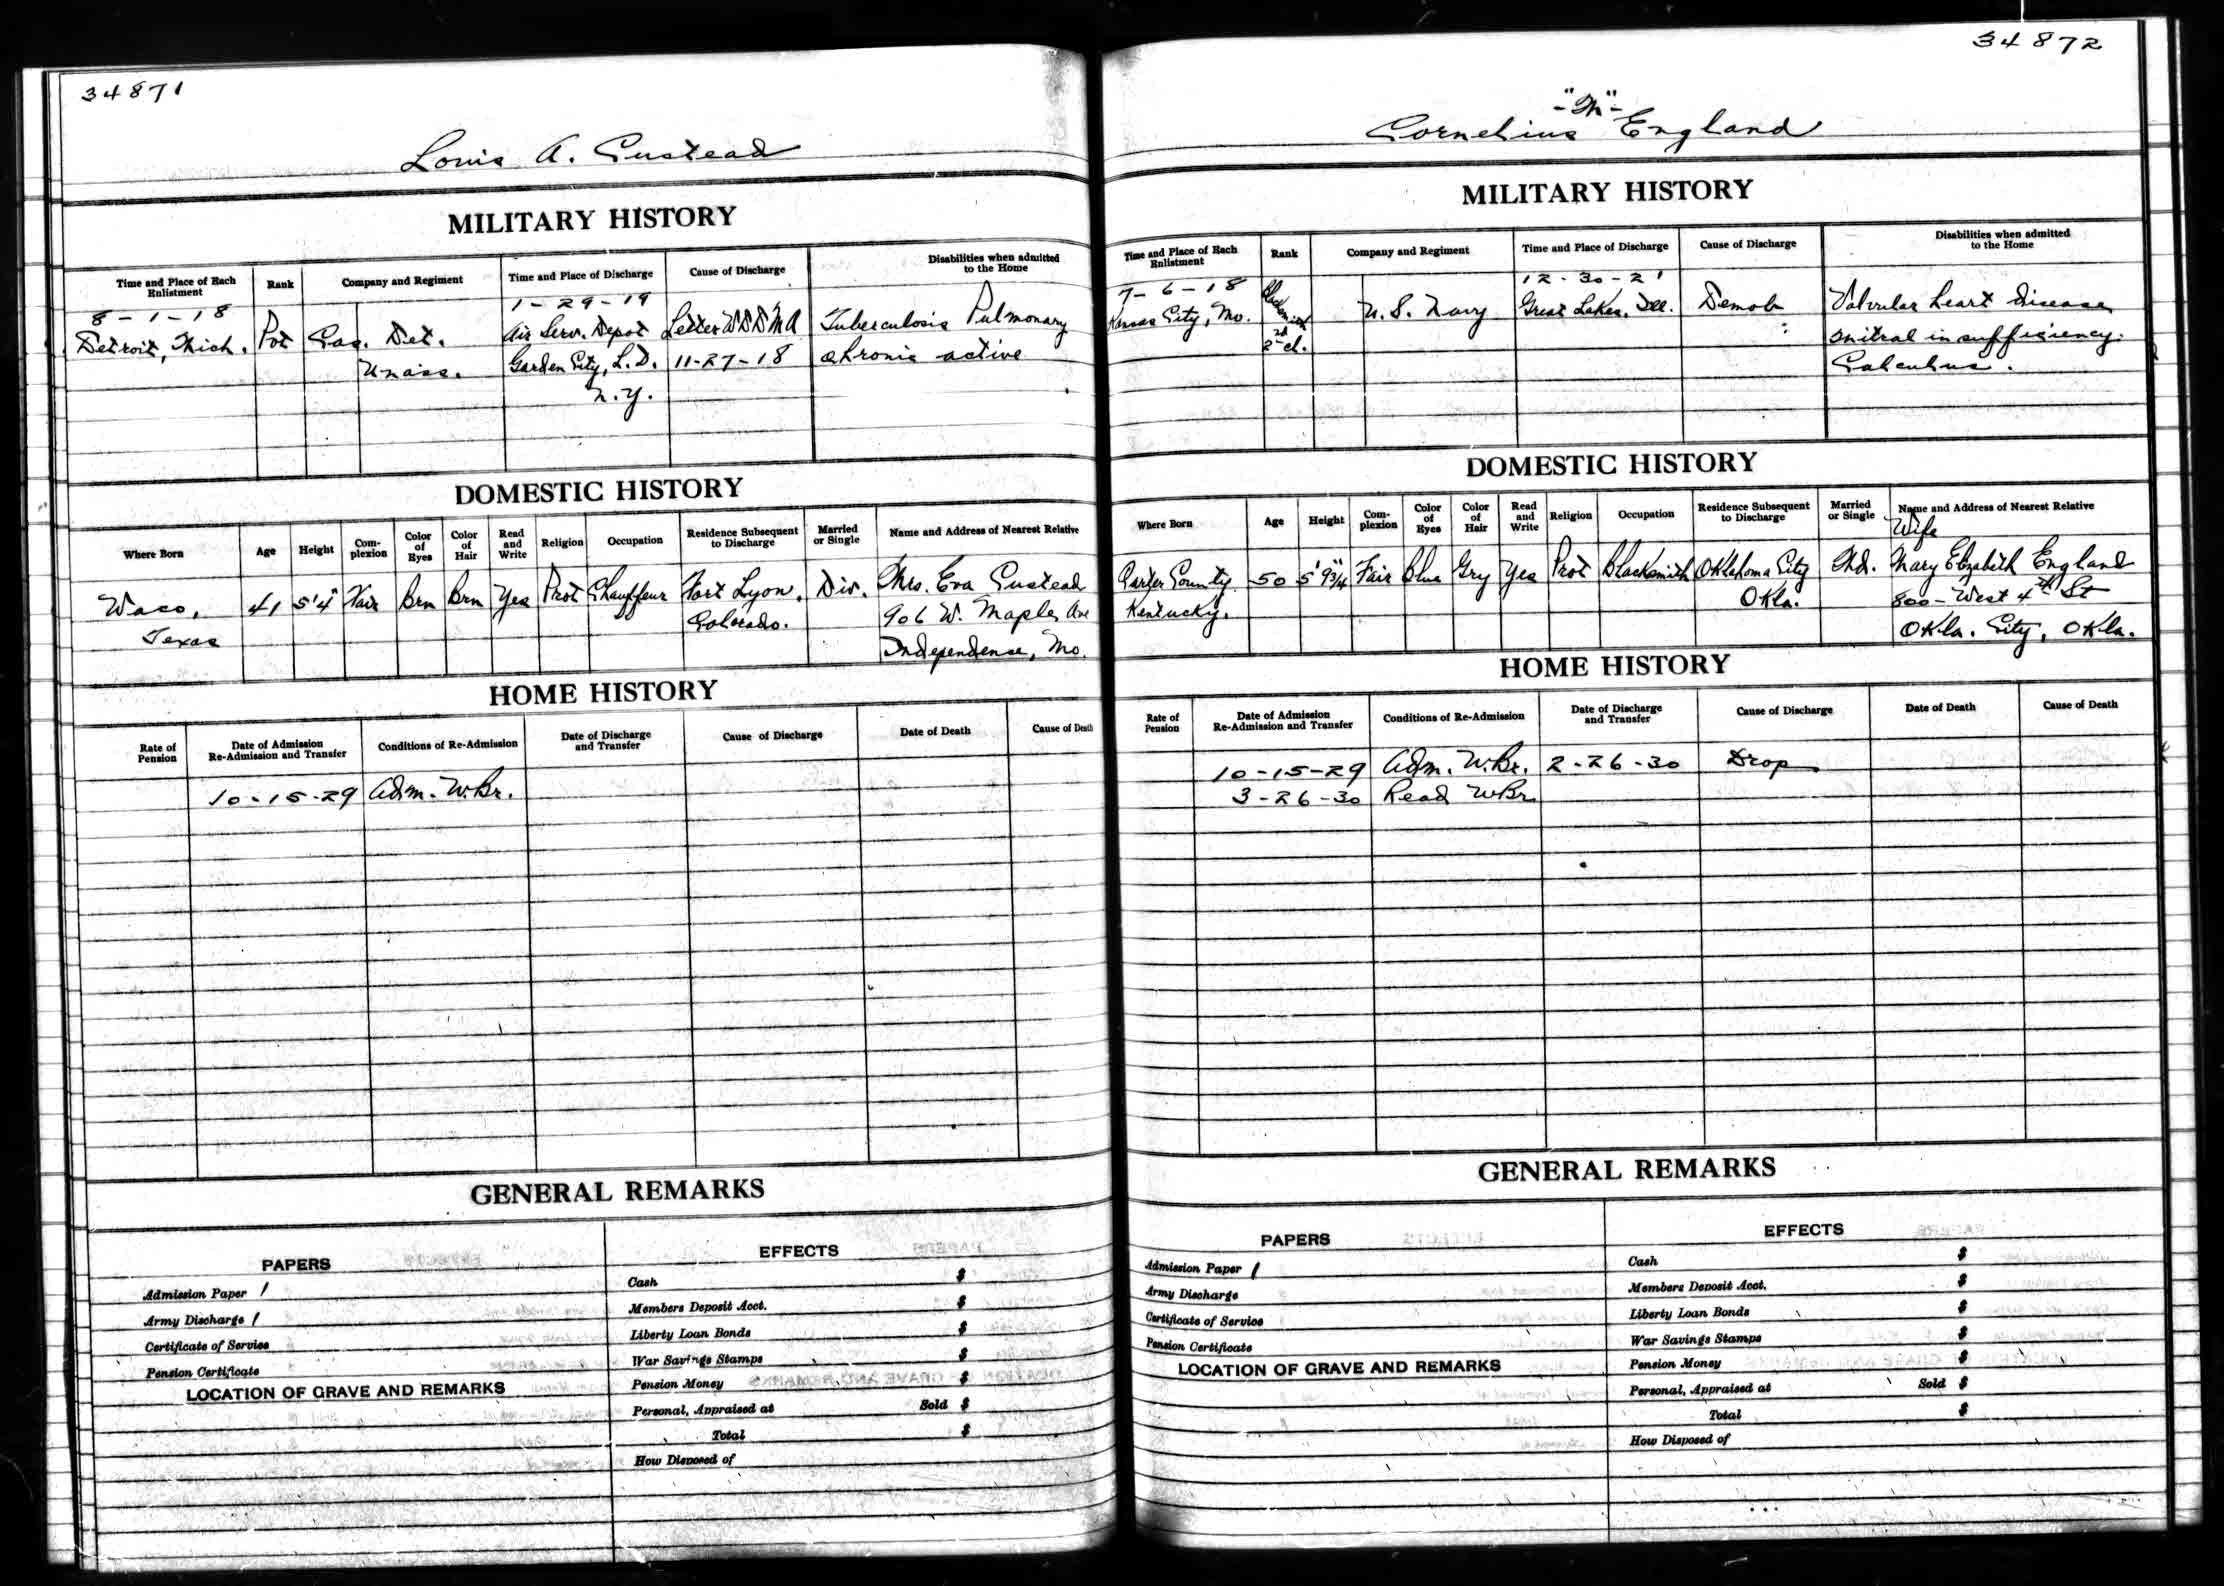 34871
Louis A. Custead
MILITARY HISTORY
Time and Place of Each Enlistment
Rank
Company and Regiment
Time and Place of Discharge
Cause of Discharge
Disabilities when admitted to the Home
8-1-18
Detroit, Mich.
Pvt
Cas. Det.
Unass.
1-29-19
Air Serv. Depot
Garden City, L.I.
N.Y.
Letter W D
11-27-18
Tuberculosis Pulmonary
chronic active
DOMESTIC HISTORY
Where Born
Age
Height
Complexion
Color of Eyes
Color of Hair
Read and Write
Religion
Occupation
Residence Subsequent to Discharge
Married or Single
Name and Address of Nearest Relative
Waco,
Texas
41
5'4"
Fair
Brn
Brn
Yes
Prot
Chauffeur
Fort Lyon,
Colorado.
Div.
Mrs. Eva Custead
906 W. Maple Ave
Independence, Mo.
HOME HISTORY
Rate of Pension
Date of Admission Re-Admission and Transfer
Conditions of Re-Admission
Date of Discharge and Transfer
Cause of Discharge
Date of Death
Cause of Death
10-15-29
Adm. W.Br.
GENERAL REMARKS
PAPERS
Admission Paper /
Army Discharge /
Certificate of Service
Pension Certificate
LOCATION OF GRAVE AND REMARKS
EFFECTS
Cash $
Members Deposit Acct. $
Liberty Loan Bonds $
War Savings Stamps $
Pension Money $
Personal, Appraised at Sold $
Total $
How Disposed of
34872
-"M"-
Cornelius England
MILITARY HISTORY
Time and Place of Each Enlistment
Rank
Company and Regiment
Time and Place of Discharge
Cause of Discharge
Disabilities when admitted to the Home
7-6-18
Kansas City, Mo.
Blacksmith
2nd cl.
U.S. Navy
12-30-21
Great Lakes, Ill.
Demob
Valvular heart disease
mitral insufficiency.
Calculus.
DOMESTIC HISTORY
Where Born
Age
Height
Complexion
Color of Eyes
Color of Hair
Read and Write
Religion
Occupation
Residence Subsequent to Discharge
Married or Single
Name and Address of Nearest Relative
Carter County
Kentucky.
50
5' 9 3/4"
Fair
Blue
Gry
Yes
Prot
Blacksmith
Oklahoma City
Okla.
Md.
Wife
Mary Elizabeth England
800-West 4th St
Okla. City, Okla.
HOME HISTORY
Rate of Pension
Date of Admission Re-Admission and Transfer
Conditions of Re-Admission
Date of Discharge and Transfer
Cause of Discharge
Date of Death
Cause of Death
10-15-29 Adm. W.Br. 2-26-30 Drop
3-26-30 Read W.Br.
GENERAL REMARKS
PAPERS
Admission Paper /
Army Discharge
Certificate of Service
Pension Certificate
LOCATION OF GRAVE AND REMARKS
EFFECTS
Cash $
Members Deposit Acct. $
Liberty Loan Bonds $
War Savings Stamps $
Pension Money $
Personal, Appraised at Sold $
Total $
How Disposed of